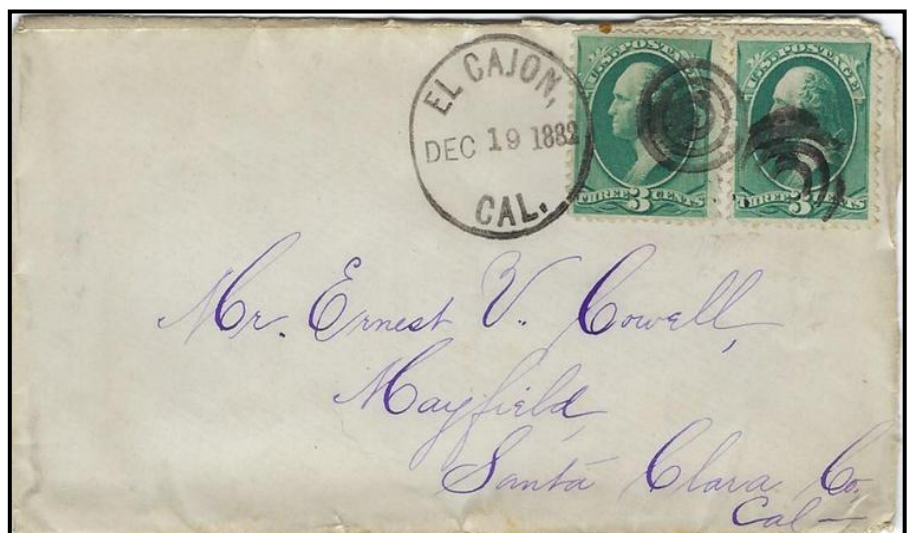 EL CAJON,
DEC 19 1882
CAL.
U.S. POSTAGE
THREE 3 CENTS
U.S. POSTAGE
THREE 3 CENTS
Mr. Ernest V. Cowell,
Mayfield,
Santa Clara Co.
Cal-